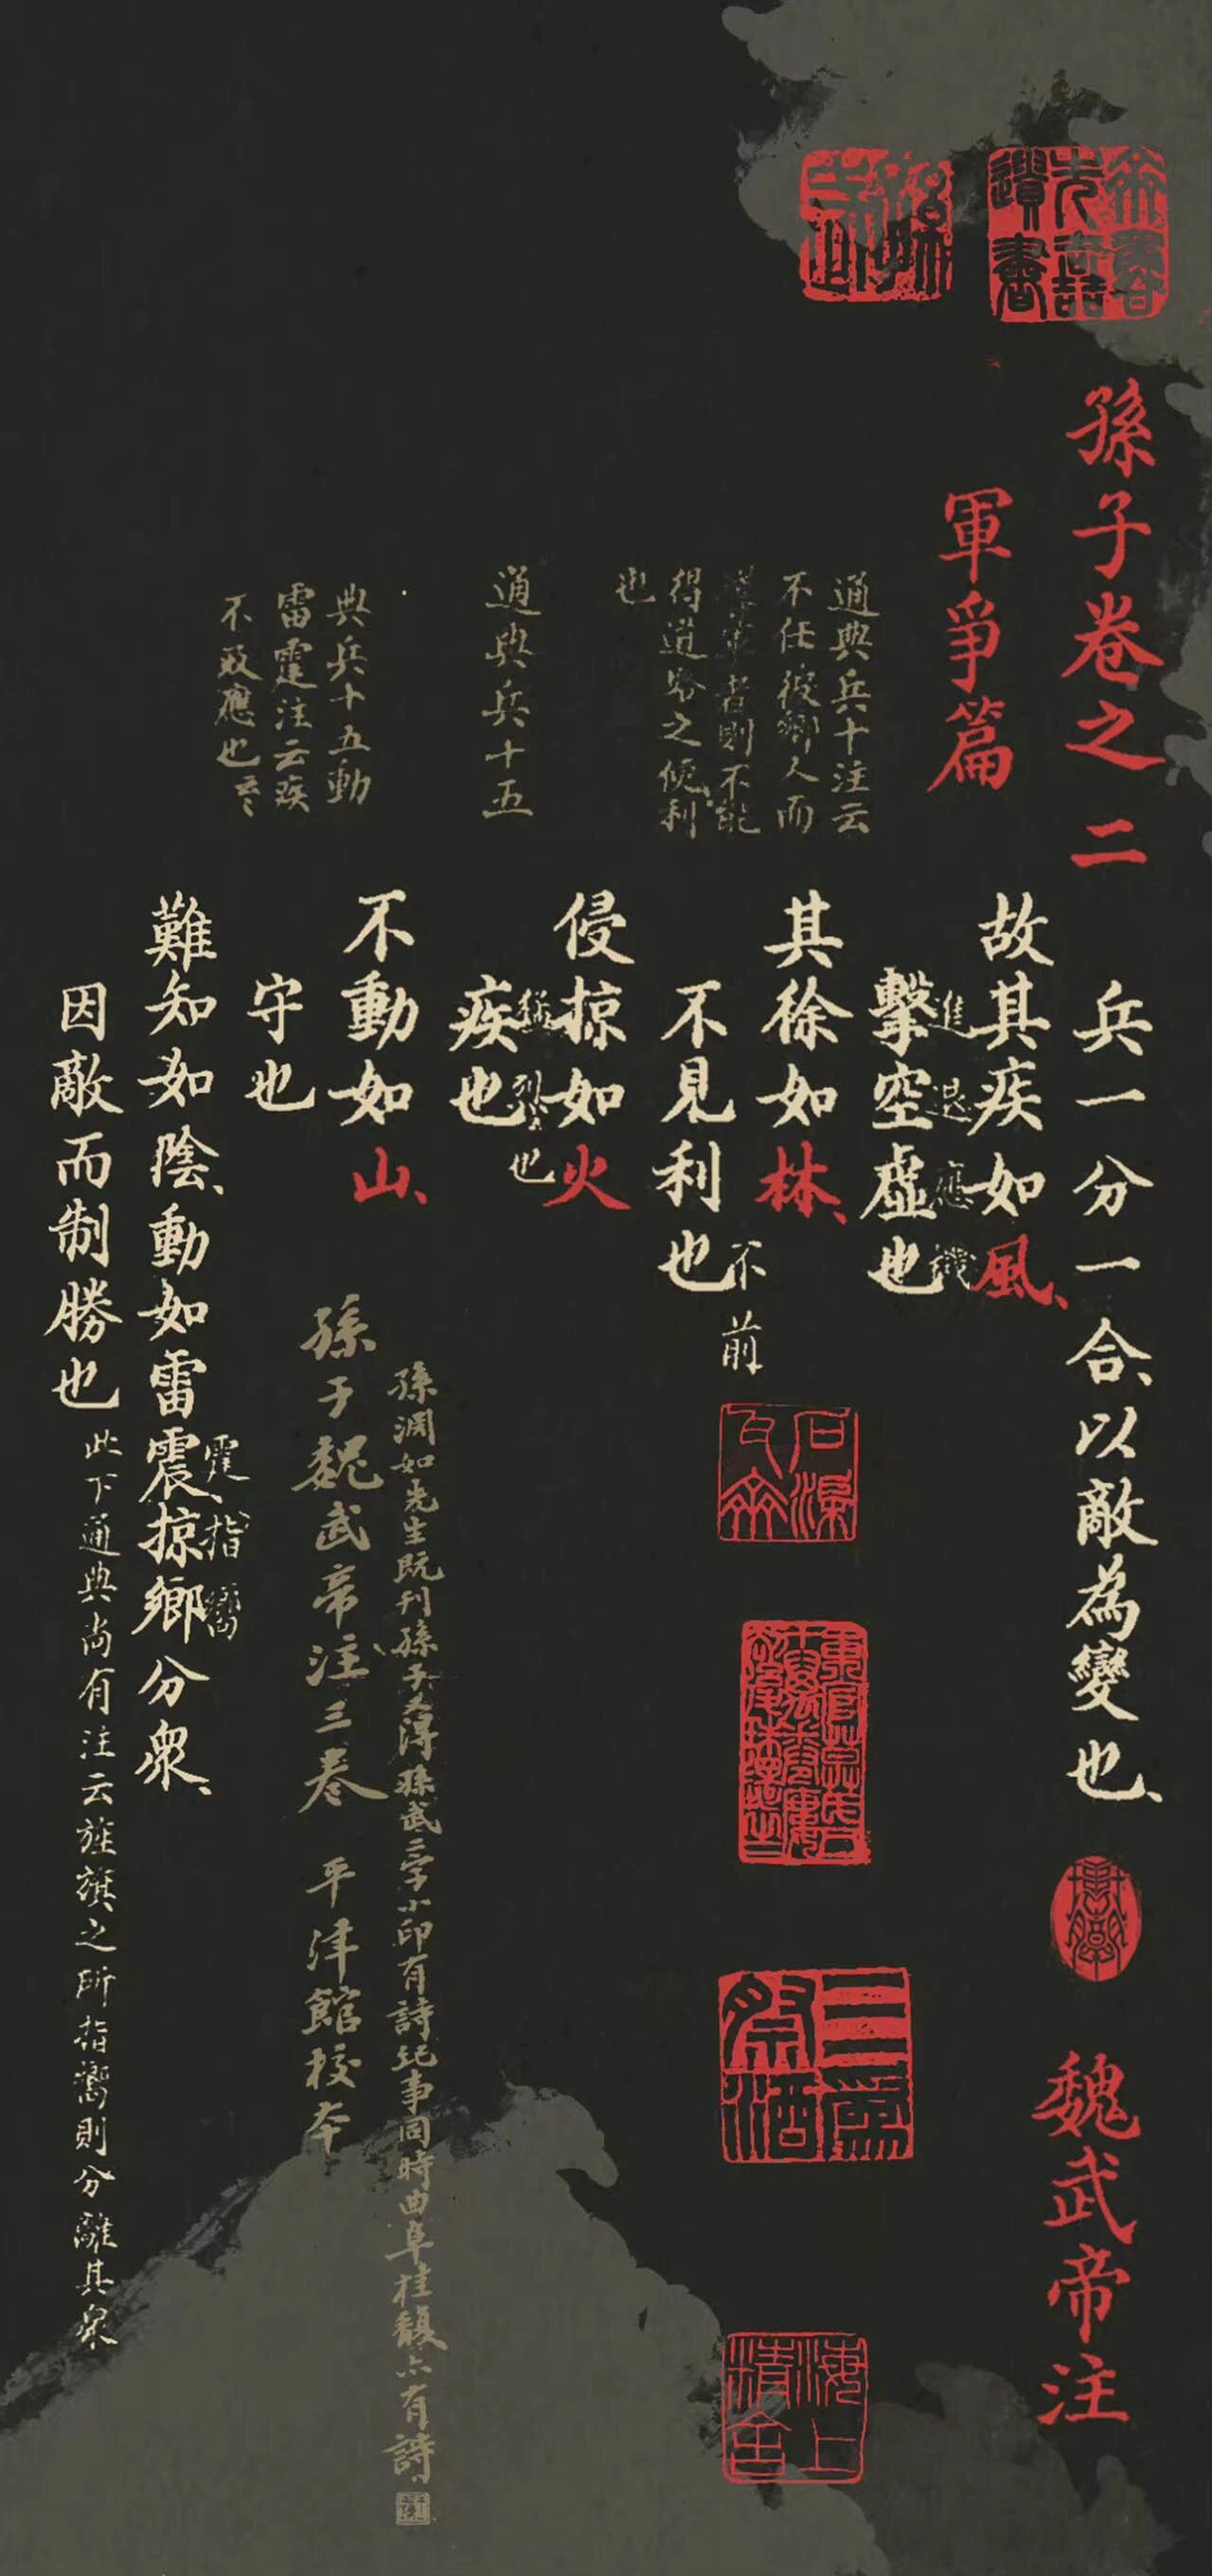 孫子卷之二
魏武帝注
軍爭篇
兵一分一合、以敵為變也、
故其疾如風、
進退應機
擊空虛也
其徐如林、
不前
不見利也
侵掠如火
猛烈也
疾也
不動如山、
守也
難知如陰、動如雷震掠鄉分衆、
霆、指嚮
因敵而制勝也
此下通典尚有注云旌旗之所指嚮則分離其衆
通典兵十注云
不任彼鄉人而
導軍者則不能
得道路之便利
也
通典兵十五
典兵十五動
雷霆注云疾
不及應也
孫淵如先生既刊孫子又得孫武子小印有詩紀事同時曲阜桂馥亦有詩
孫子魏武帝注三卷 平津館校本
先喆遺書
三爲祭酒
海上精舍